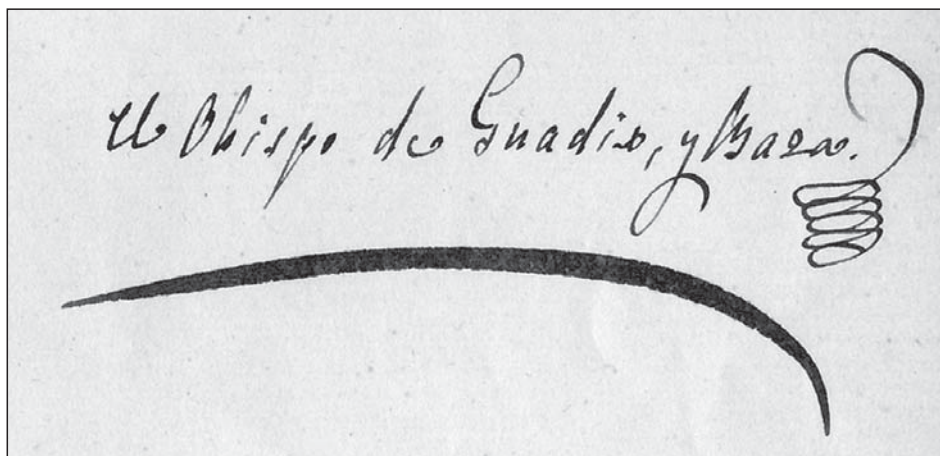 El Obispo de Guadix, y Baza.